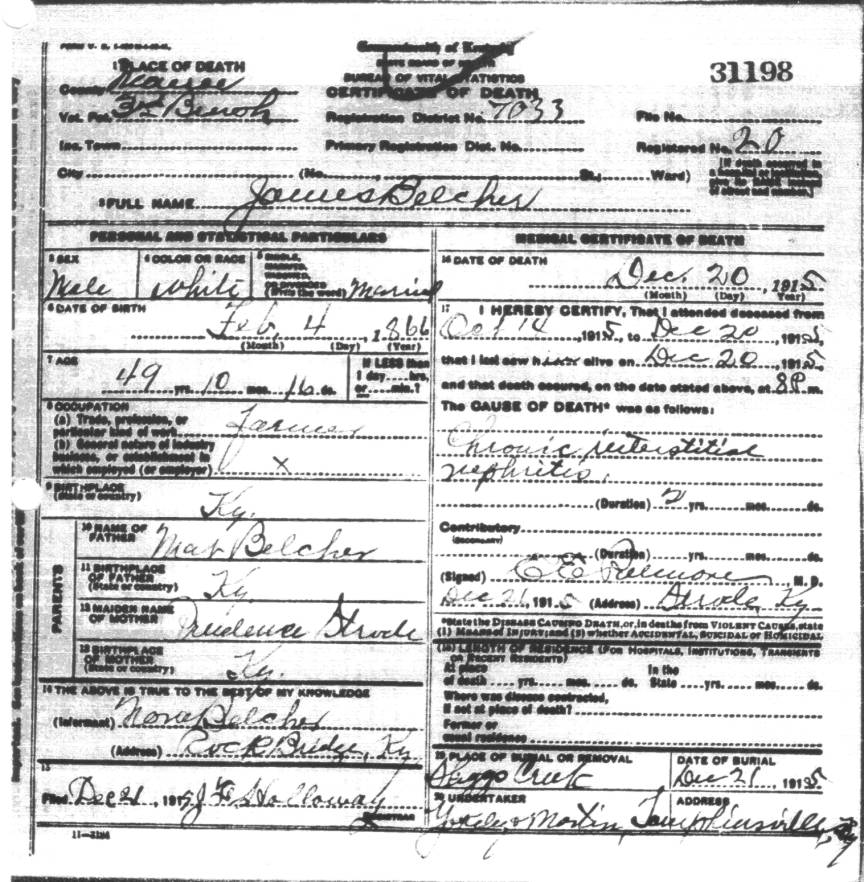 FORM V. S.
Commonwealth of Kentucky
STATE BOARD OF HEALTH
BUREAU OF VITAL STATISTICS
CERTIFICATE OF DEATH
31198
1 PLACE OF DEATH
County Monroe
Vot. Pct. 3rd
Registration District No. 7033
File No.
Inc. Town
Primary Registration Dist. No.
Registered No. 20
City (No. , St., Ward)
[If death occurred in a hospital or institution, give its NAME instead of street and number.]
2 FULL NAME James Belcher
PERSONAL AND STATISTICAL PARTICULARS
3 SEX
Male
4 COLOR OR RACE
White
5 SINGLE, MARRIED, WIDOWED, OR DIVORCED (Write the word) Married
6 DATE OF BIRTH
Feb, 4, 1866
(Month) (Day) (Year)
7 AGE
49 yrs. 10 mos. 16 ds.
If LESS than 1 day....hrs. or....min.?
8 OCCUPATION
(a) Trade, profession, or particular kind of work Farmer
(b) General nature of industry business, or establishment in which employed (or employer) x
9 BIRTHPLACE
(State or country) Ky.
PARENTS
10 NAME OF FATHER Belcher
11 BIRTHPLACE OF FATHER
(State or country) Ky
12 MAIDEN NAME OF MOTHER Prudence Strode
13 BIRTHPLACE OF MOTHER
(State or country) Ky.
14 THE ABOVE IS TRUE TO THE BEST OF MY KNOWLEDGE
(Informant) Belcher
(Address) Rock Bridge, Ky
15
Filed Dec 21, 1915 Holloway
REGISTRAR
11-3184
MEDICAL CERTIFICATE OF DEATH
16 DATE OF DEATH
Dec. 20, 1915
(Month) (Day) Year)
17 I HEREBY CERTIFY, That I attended deceased from
Oct 14 1915, to Dec 20, 1915,
that I last saw him alive on Dec 20, 1915,
and that death occured, on the date stated above, at 8P m.
The CAUSE OF DEATH* was as follows:
Chronic interstitial
nephritis.
(Duration) 2 yrs. mos. ds.
Contributory
(SECONDARY)
(Duration) yrs. mos. ds.
(Signed) M. D.
Dec 21, 1915 (Address) Strode, Ky
*State the DISEASE CAUSING DEATH, or, in deaths from VIOLENT CAUSES, state
(1) MEANS OF INJURY; and (2) whether ACCIDENTAL, SUICIDAL or HOMICIDAL
(18) LENGTH OF RESIDENCE (FOR HOSPITALS, INSTITUTIONS, TRANSIENTS OR RECENT RESIDENTS)
At place of death yrs. mos. ds. In the State yrs. mos. ds.
Where was disease contracted, if not at place of death?
Former or usual residence
19 PLACE OF BURIAL OR REMOVAL
Skaggs Creek
DATE OF BURIAL
Dec 21, 1915
20 UNDERTAKER
Martin,
ADDRESS
Tompkinsville, Ky